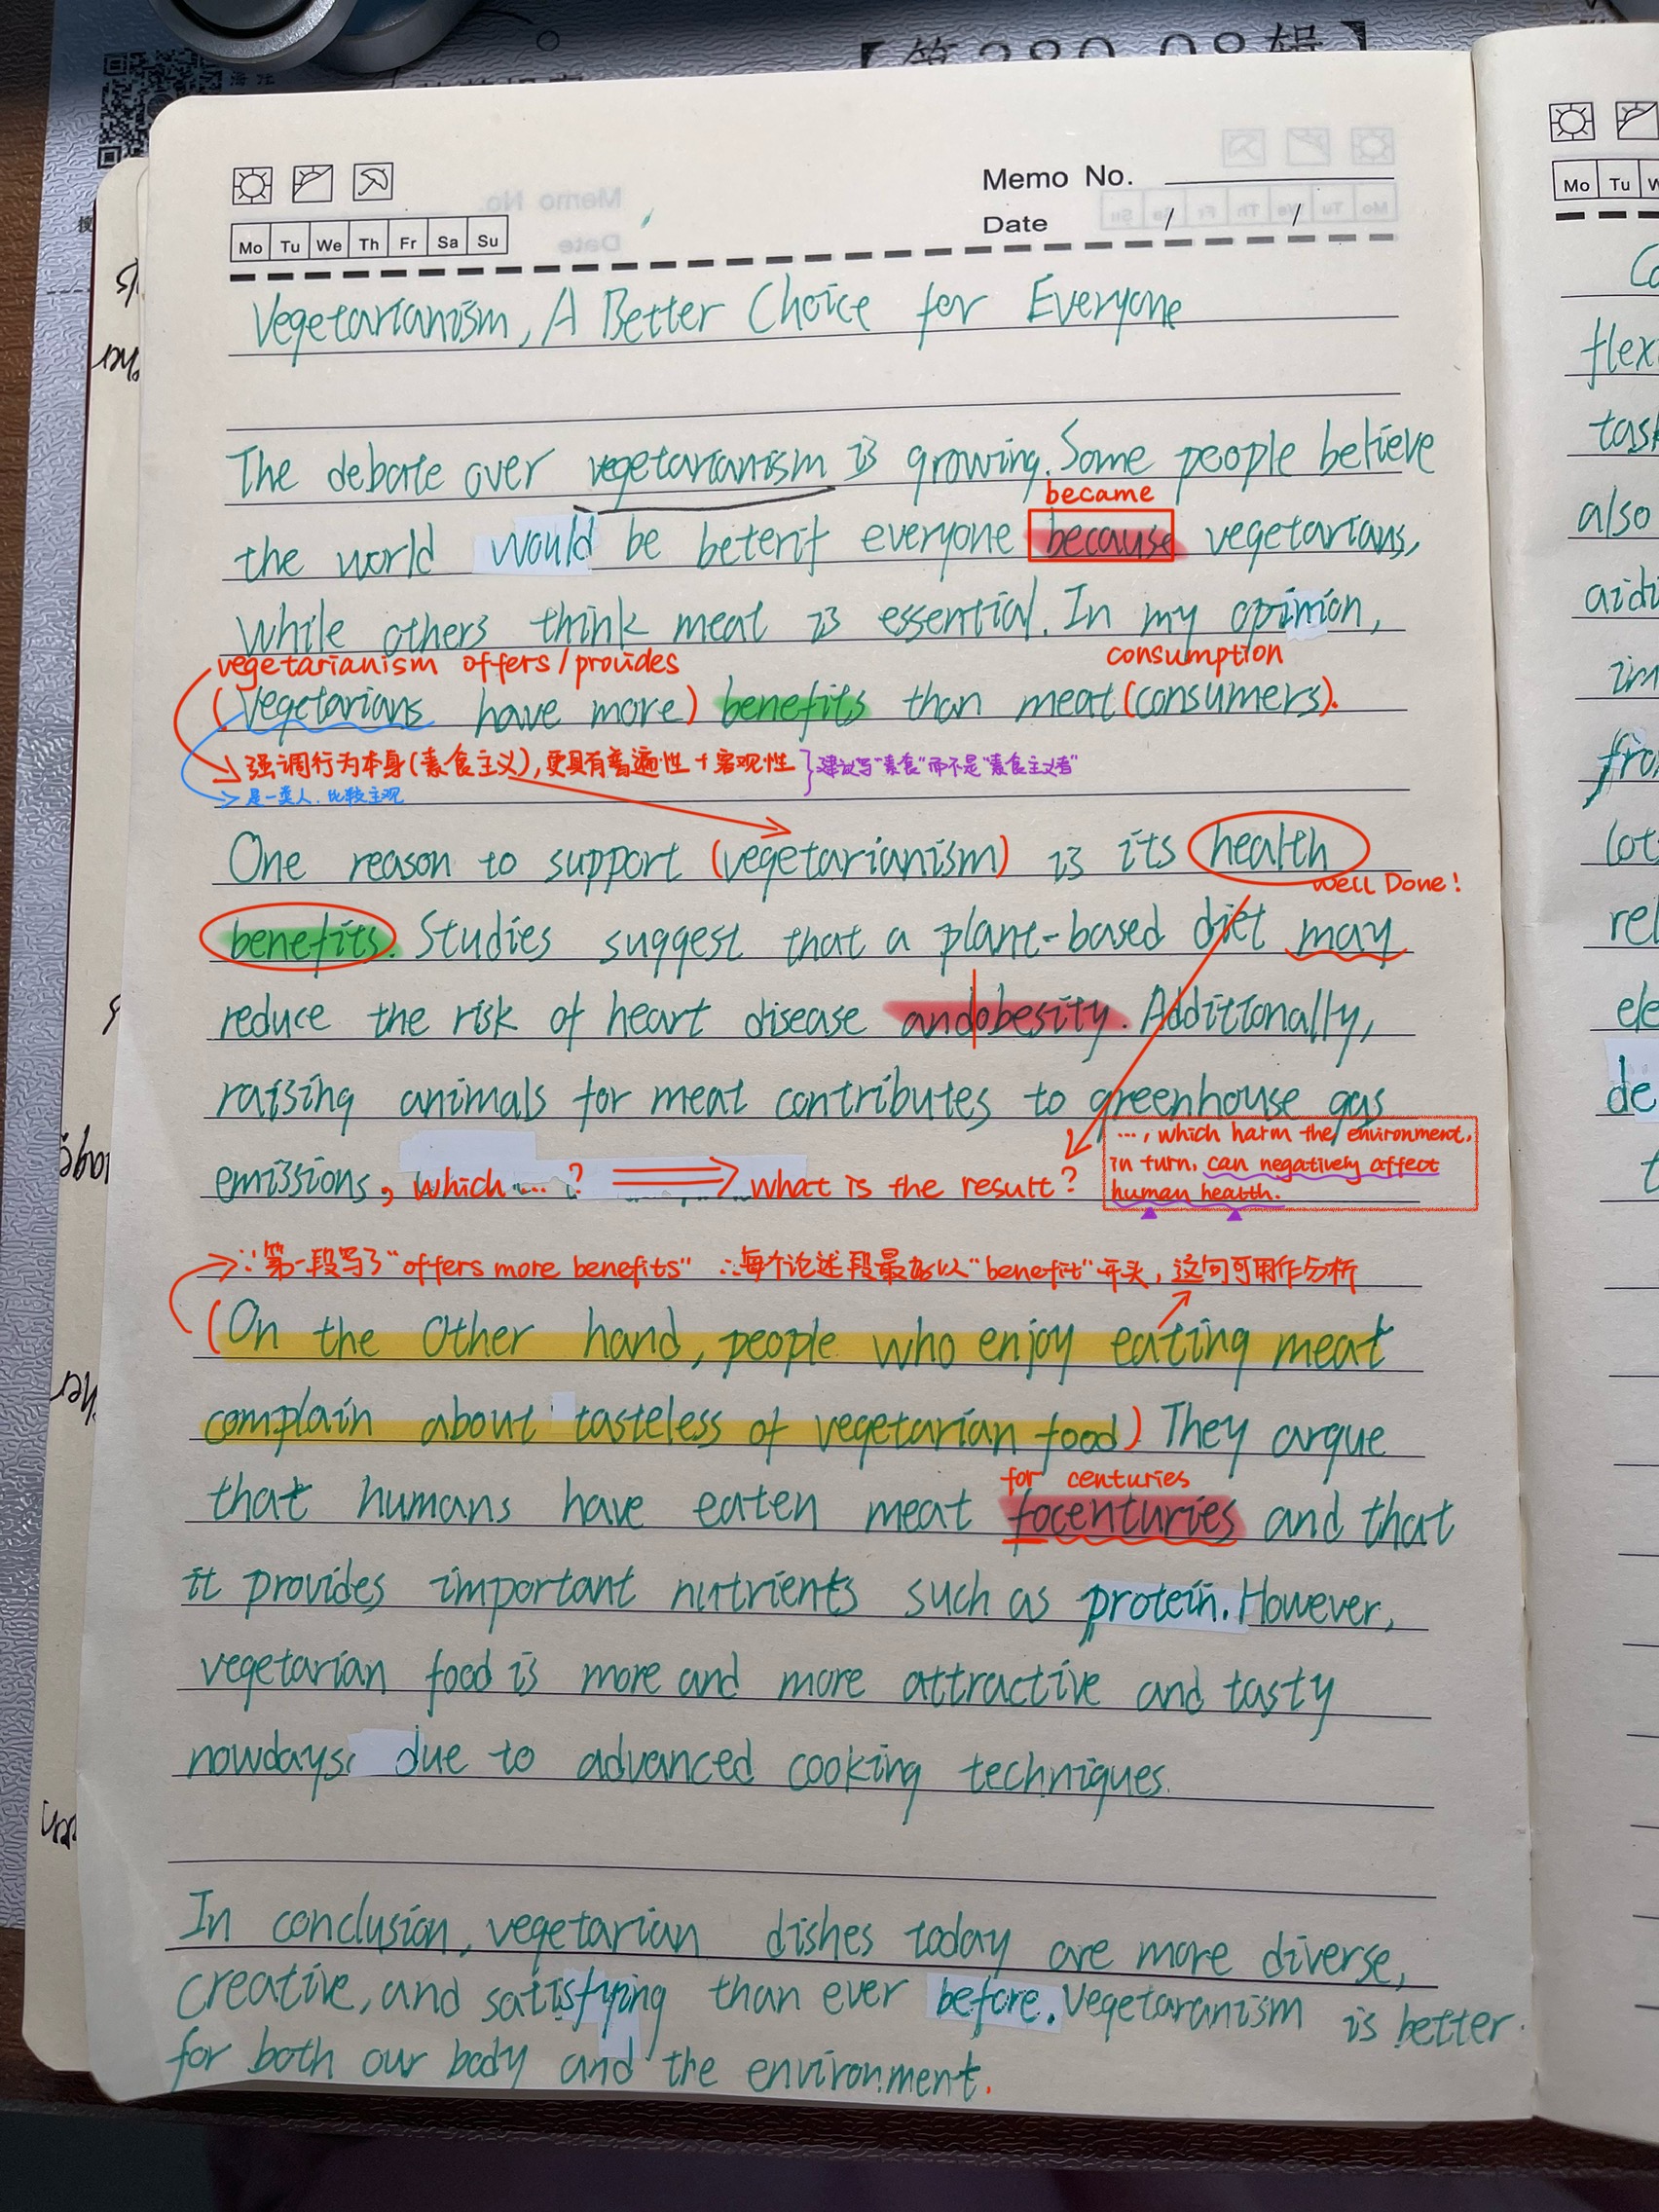 【第280.08辑】
Memo No.
Date / /
Mo Tu We Th Fr Sa Su
Vegetarianism, A Better Choice for Everyone
The debate over vegetarianism is growing. Some people believe
became
the world would be beterif everyone because vegetarians,
while others think meat is essential. In my opinion,
vegetarianism offers/provides consumption
(Vegetarians have more) benefits than meat (consumers).
强调行为本身(素食主义),更具有普遍性+客观性 }建议写"素食"而不是"素食主义者"
是一类人.比较主观
One reason to support (vegetarianism) is its health
Well Done!
benefits. Studies suggest that a plant-based diet may
reduce the risk of heart disease and|obesity. Additionally,
raising animals for meat contributes to greenhouse gas
..., which harm the environment,
in turn, can negatively affect
human health.
emissions, which ...? what is the result?
∵第一段写了"offers more benefits" ∴每个论述段最好以"benefit"开头,这句可用作分析
(On the Other hand, people who enjoy eating meat
complain about tasteless of vegetarian food) They argue
for centuries
that humans have eaten meat focenturies and that
it provides important nutrients such as protein. However,
vegetarian food is more and more attractive and tasty
nowdays due to advanced cooking techniques.
In conclusion, vegetarian dishes today are more diverse,
creative, and satisfying than ever before. Vegetaranism is better
for both our body and the environment.
Mo Tu
flex
task
also
aidi
im
fro
lot
rel
ele
de